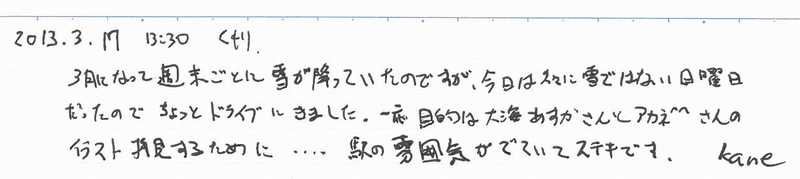 2013.3.17 13:30 くもり.
3月になって週末ごとに雪が降っていたのですが、今日は久々に雪ではない日曜日
だったので ちょっとドライブにきました。一応 目的は大海あすかさんとアカネ^^さんの
イラスト拝見するために .... 駅の雰囲気がでていてステキです. kane